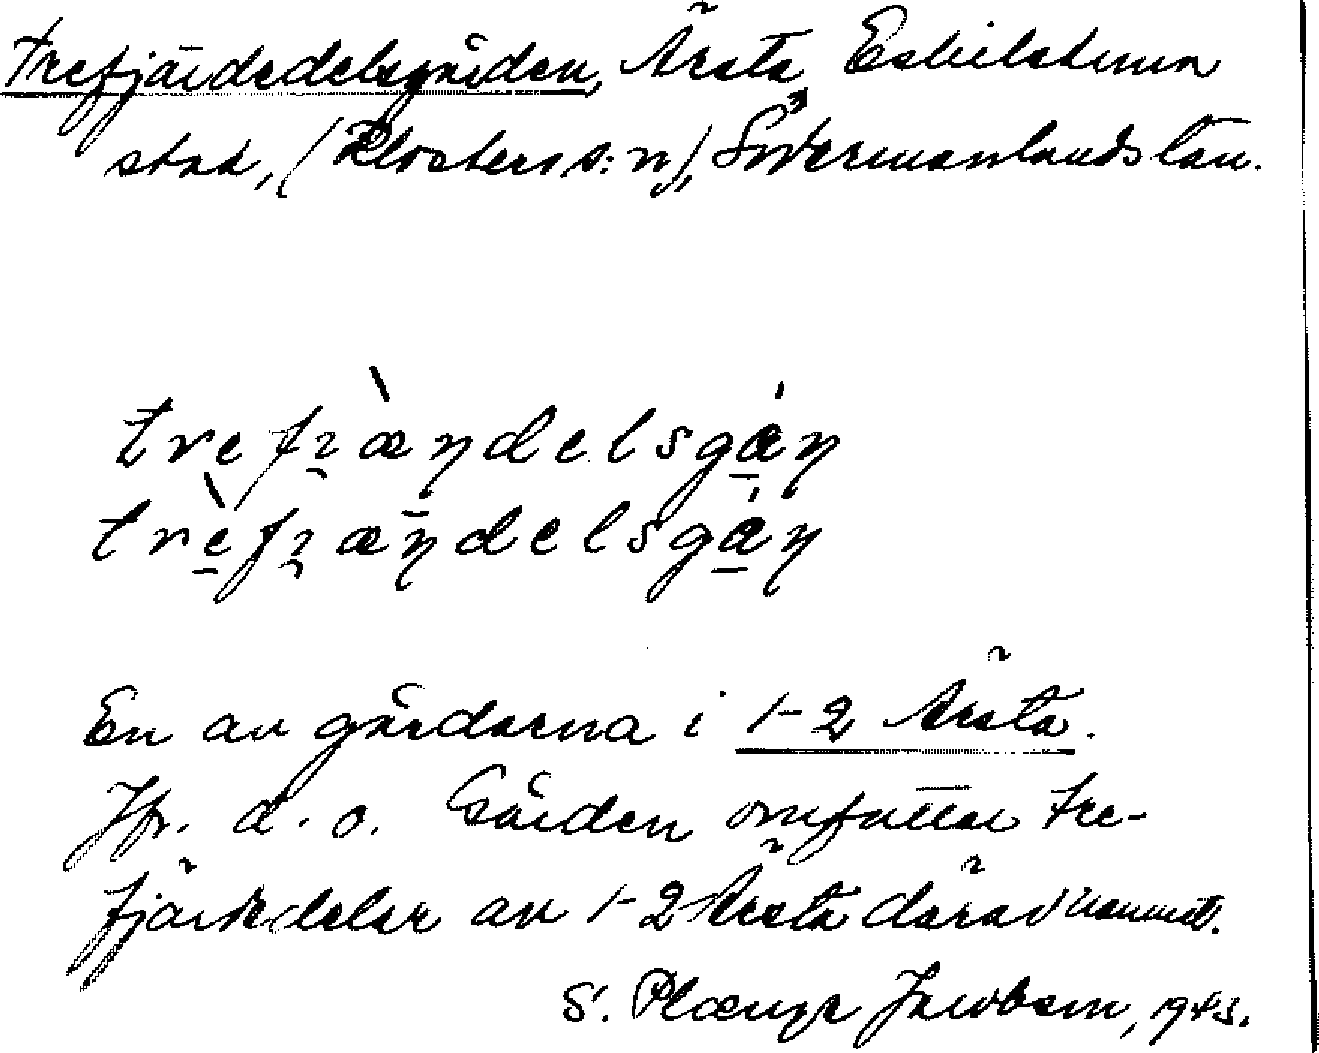 Trefjärdedelsgården, Ärsta, Eskilstuna
stad, (Klosters s:n), Södermanlands län.
trefɿæ̀ŋdelsgá̱ŋ
trè̱fɿæŋ̄delsgá̱ŋ
En av gårdarna i 1-2 Ärsta.
Jfr. d. o. Gården omfattar tre-
fjärdedelar av 1-2 Ärsta därav namnet.
S. Jacobson, 1943.